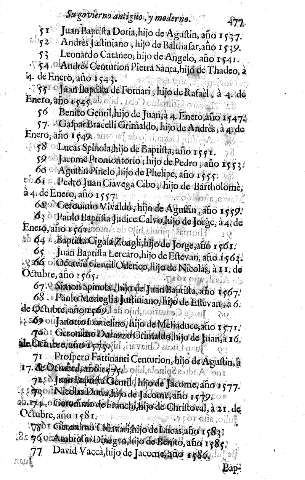 Su govierno antiguo, y moderno. 477
51 Juan Baptista Doria, hijo de Agustin, año 1537.
52 Andrès Justiniano, hijo de Balthasar, año 1539.
53 Leonardo Cataneo, hijo de Angelo, año 1541.
54 Andrès Centurion Pietra Santa, hijo de Thadeo, à
4. de Enero, año 1543.
55 Juan Baptista de Fornari, hijo de Rafaèl, à 4. de
Enero, año 1545.
56 Benito Gentil, hijo de Juan, à 4. Enero, año 1547.
57 Gaspar Bracelli Grimaldo, hijo de Andrès, à 4. de
Enero, año 1549.
58 Lucas Spinola, hijo de Baptista, año 1551.
59 Jacome Promontorio, hijo de Pedro, año 1553.
60 Agustin Pinelo, hijo de Phelipe, año 1555.
61 Pedro Juan Ciavega Cibo, hijo de Bartholomè,
à 4. de Enero, año 1557.
62 Geronimo Vivaldo, hijo de Agustin, año 1559.
63 Paulo Baptista Judice Calvo, hijo de Jorge, à 4. de
Enero, año 1561.
64 Baptista Cigala Zoagli, hijo de Jorge, año 1561.
65 Juan Baptista Lercaro, hijo de Estevan, año 1563.
66 Octavio Gentil Oderico, hijo de Nicolàs, à 11. de
Octubre, año 1565.
67 Simon Spinola, hijo de Juan Baptista, año 1567.
68 Paulo Moneglia Justiniano, hijo de Estevan, à 6.
de Octubre, año 1569.
69 Janotto Lomelino, hijo de Meliaduce, año 1571.
70 Geronimo Durazzo Grimaldo, hijo de Juan, à 16.
de Octubre, año 1573.
71 Prospero Fattinanti Centurion, hijo de Agustin, à
17. de Octubre, año 1575.
72 Juan Baptista Gentil, hijo de Jacome, año 1577.
73 Nicolàs Doria, hijo de Jacome, año 1579.
74 Geronimo de Franchi, hijo de Christoval, à 21. de
Octubre, año 1581.
75 Geronimo Chiavari, hijo de Lucas, año 1583.
76 Ambrosio Dinegro, hijo de Benito, año 1585.
77 David Vacca, hijo de Jacome, año 1586.
Bap-